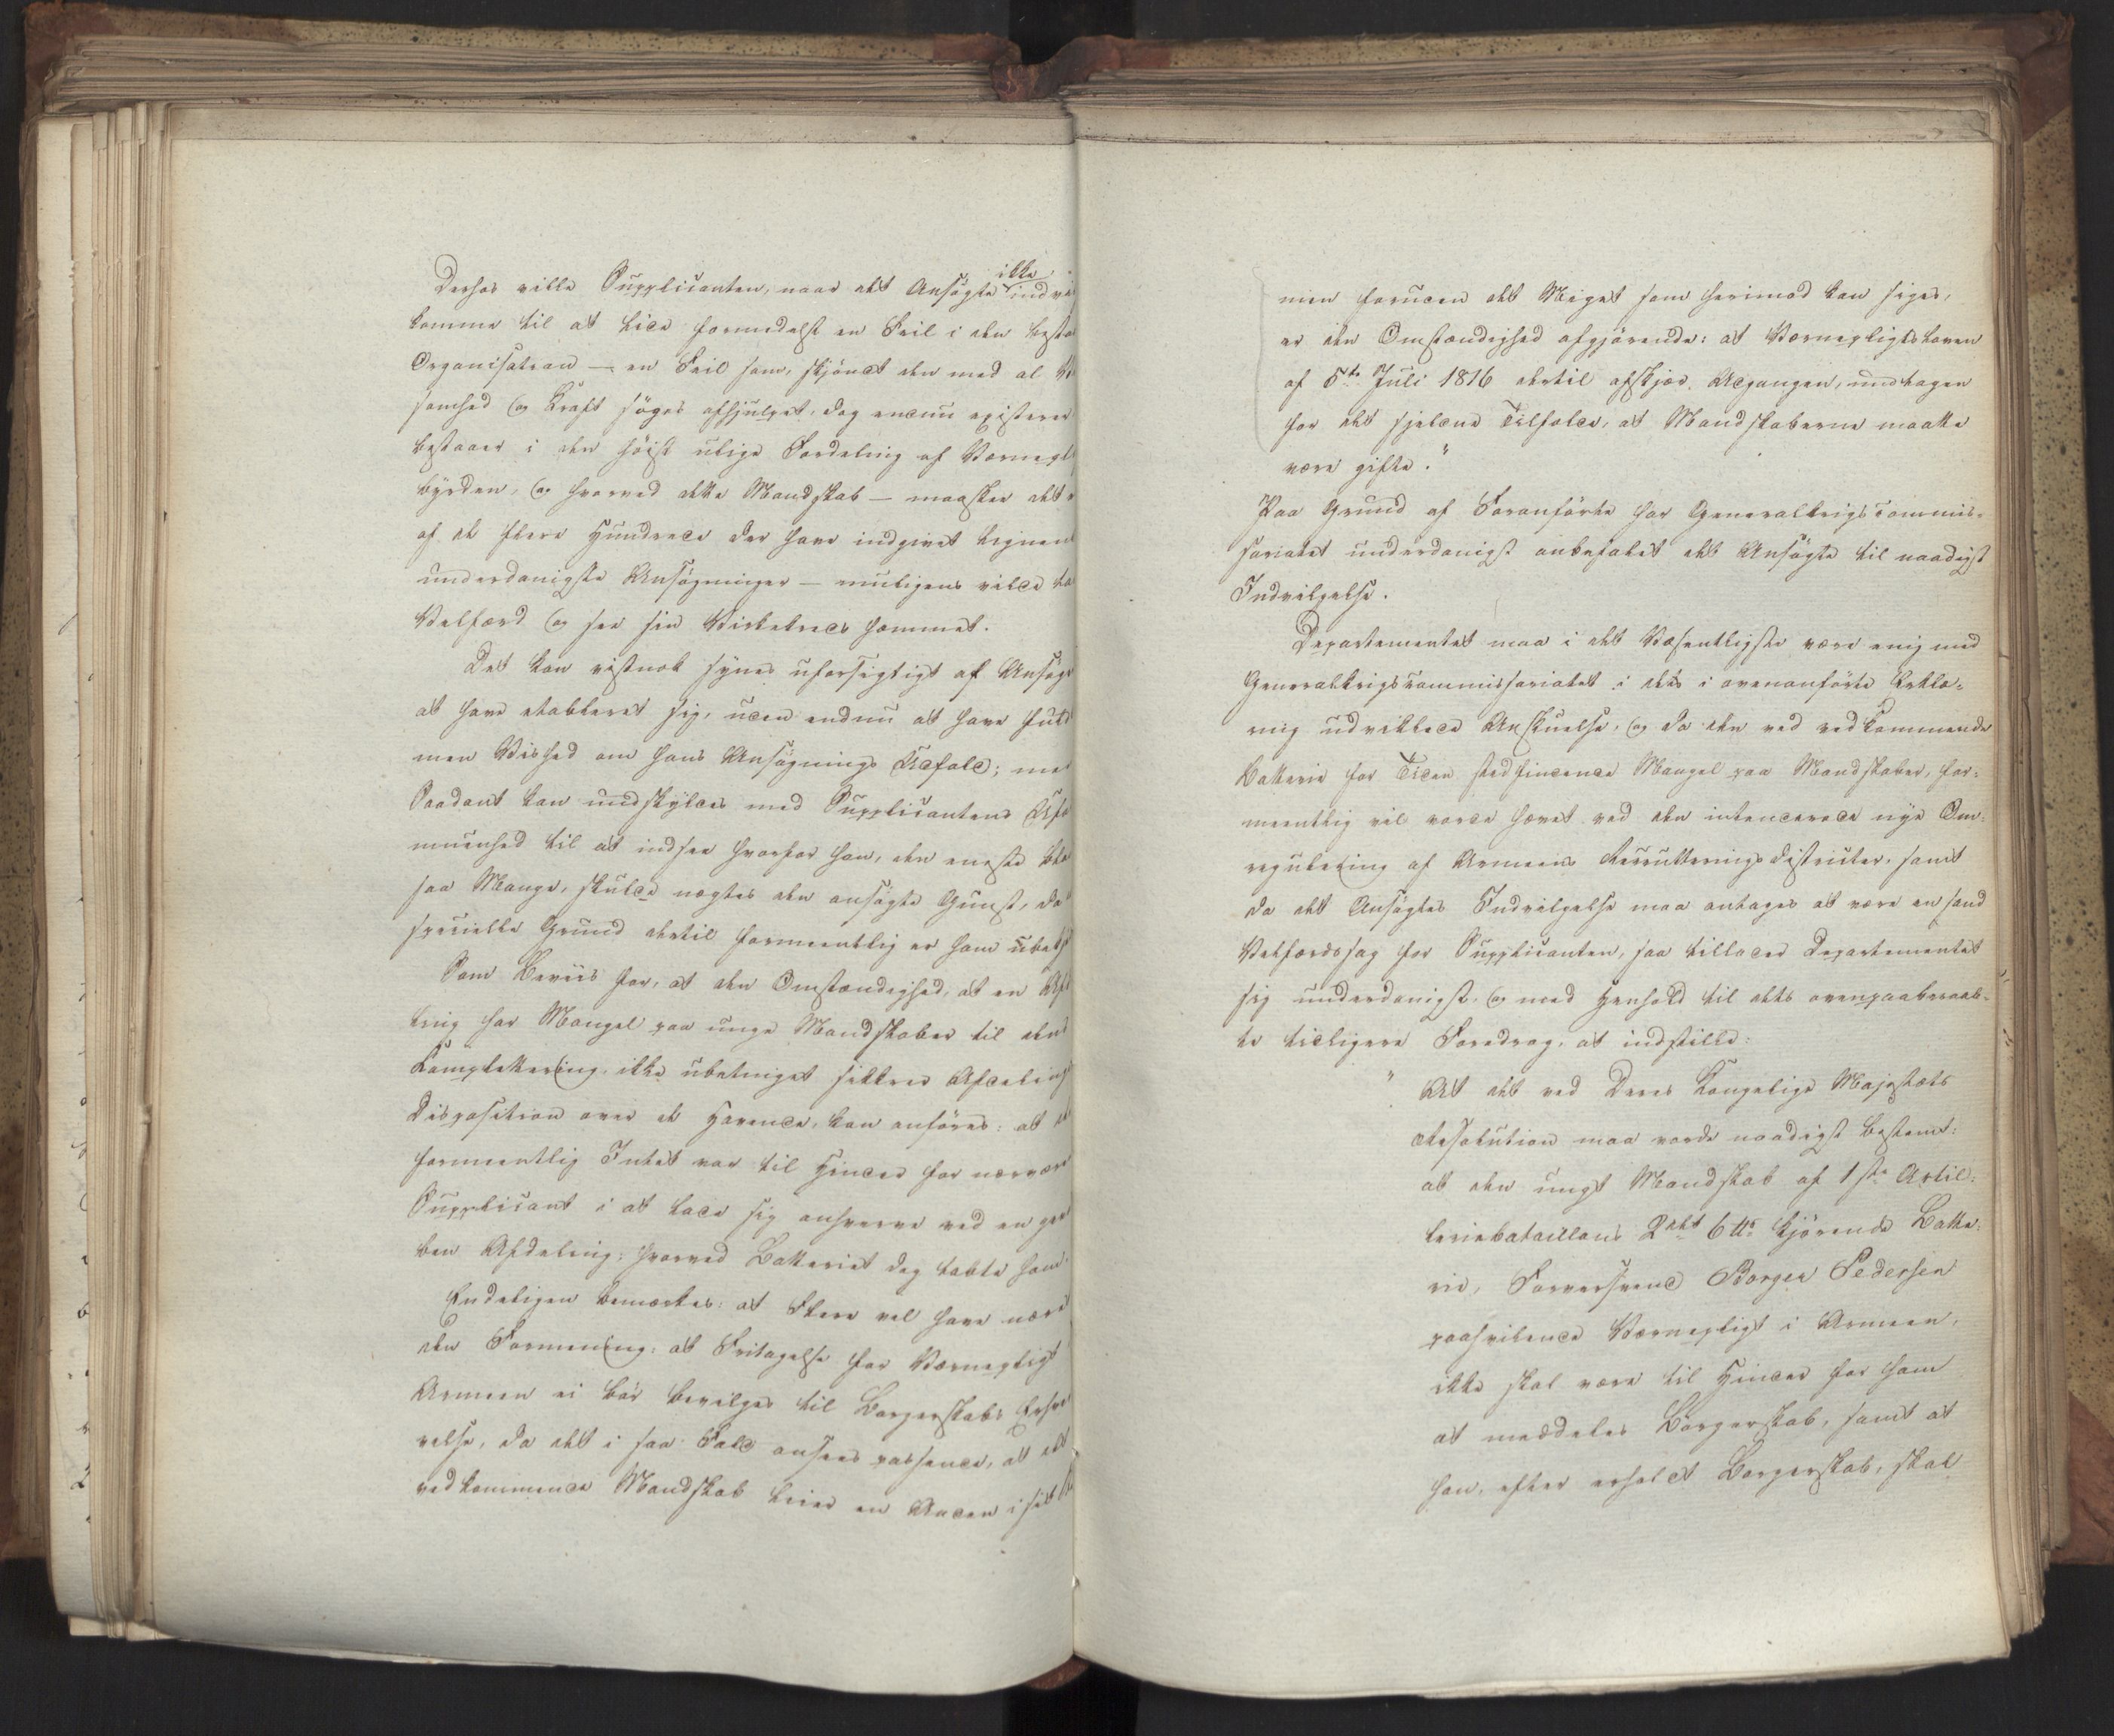 ikke
Desfor vilde Supplicanten, naar det Ansøgte indvi
komme til at lide formedelst en Feil i den besta
Organisation — en Feil som, skjöndt den med al Vi
somhed og Kraft søges afhjulpet, dog endnu existerer
bestaaer i den høist ulige Fordeling af Værnepl
byrden, og hvorved dette Mandskab — maaskee det
af de flere Hundrede der have indgivet lignen
underdanigste Ansøgninger — muligens vilde ta
Velfærd og see sin Virkekreds hæmmet.
Det kan vistnok synes uforsigtigt af Ansøge
at have etableret sig, uden endnu at have fuld
men Vished om hans Ansøgnings Udfald; men
Saadant kan undskyldes med Supplicantens Ufor
muenhed til at indsee hvorfor han, den eneste bla
saa Mange, skulde nægtes den ansøgte Gunst, da
specielle Grund dertil formeentlig er ham ubekj
Som Beviis for, at den Omstændighed, at en Afde
ling har Mangel paa unge Mandskaber til dens
Complettering, ikke ubetinget sikkrer Afdelings
Disposition over et Havende, kan anføres: at de
formeentlig Intet var til Hinder for nærvære
Supplicant i at lade sig anhverve ved en gew
ben Afdeling; hvorved Batteriet dog tabte ham.
Endeligen bemærkes: at Flere vel have nære
den Formening: at Fritagelse for Værnepligt
Armeen ei bør bevilges til Borgerskabs Erhver
velse, da det i saa Fald ansees passende, at det
vedkommende Mandskab leier en Anden i sit St
men foruden det Meget som herimod kan siges,
er den Omstændighed afgjørende: at Værnepligtsloven
af 5te Juli 1816 dertil afskjær Adgangen, undtagen
for det sjeldne Tilfælde, at Mandskaberne maatte
være gifte."
Paa Grund af Foranførte har Generalkrigscommis-
sariatet underdanigst anbefalet det Ansøgte til naadigst
Indvilgelse.
Departementet maa i det Væsentligste være enig med
Generalkrigscommissariatet i dets i ovenanførte Erklæ-
ring udviklede Anskuelse, og da den ved vedkommende
Batterie for Tiden stedfindende Mangel paa Mandskaber, for-
meentlig vil vorde hævet ved den intenderede nye Om-
regulering af Armeens Recrutteringsdistricter, samt
da det Ansøgtes Indvilgelse maa antages at være en sand
Velfærdssag for Supplicanten, saa tillader Departementet
sig underdanigst, og med Henhold til dets ovenpaaberaab-
te tidligere Foredrag, at indstille:
" At det ved Deres Kongelige Majestæts
Resolution maa vorde naadigst bestemt:
at den ungt Mandskab af 1ste Artil-
leriebataillons 2det 6 ℔s kjörende Batte-
rie, Farversvend Borger Pedersen
paahvilende Værnepligt i Armeen,
ikke skal være til Hinder for ham
at meddeles Borgerskab, samt at
han, efter erholdt Borgerskab, skal